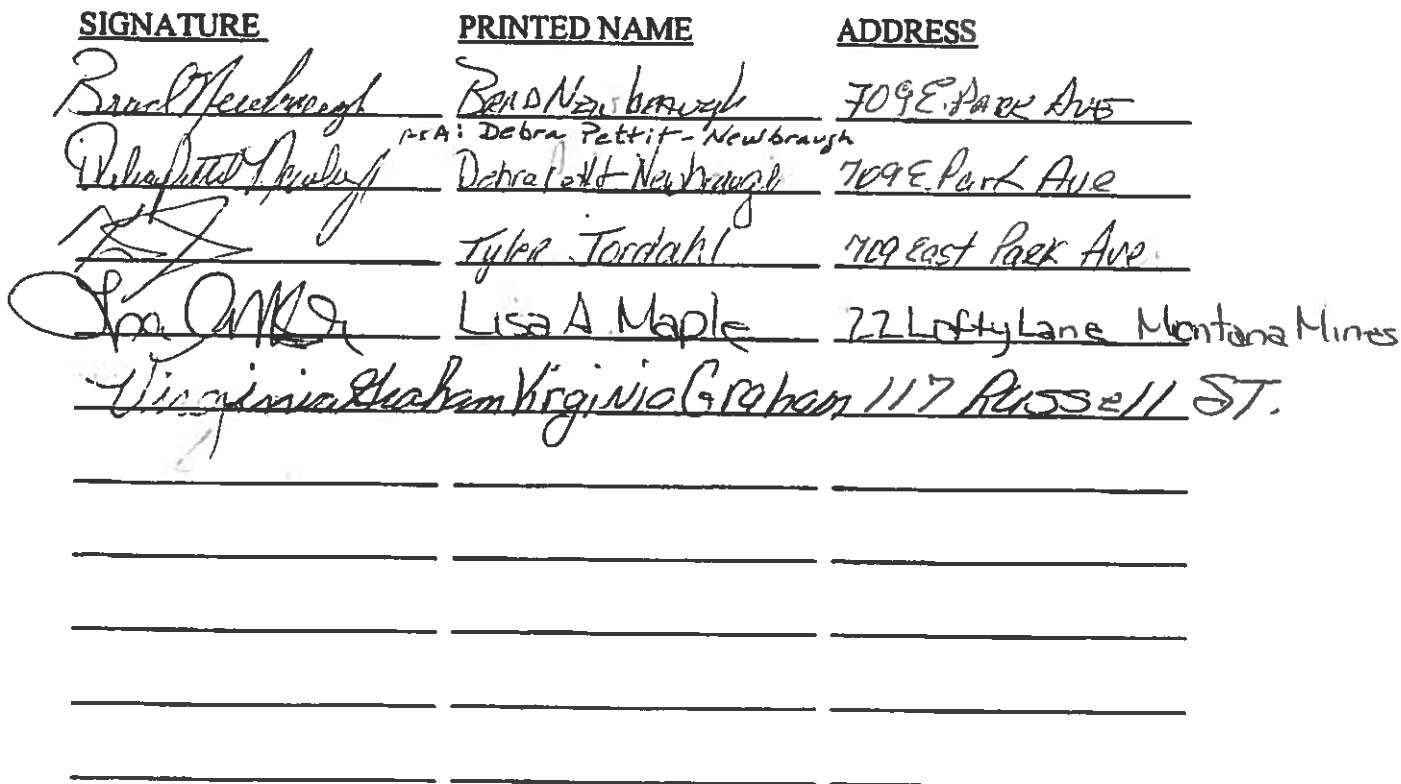 SIGNATURE PRINTED NAME ADDRESS
Brad Newbraugh Brad Newbraugh 709 E. Park Ave
Debra Pettit-Newbraugh
Debra Pettit Newbraugh Debra Pettit-Newbraugh 709 E. Park Ave
Tyler Tordahl 709 East Park Ave.
Lisa A Maple 22 Lofty Lane Montana Mines
Virginia Graham Virginia Graham 117 Russell ST.